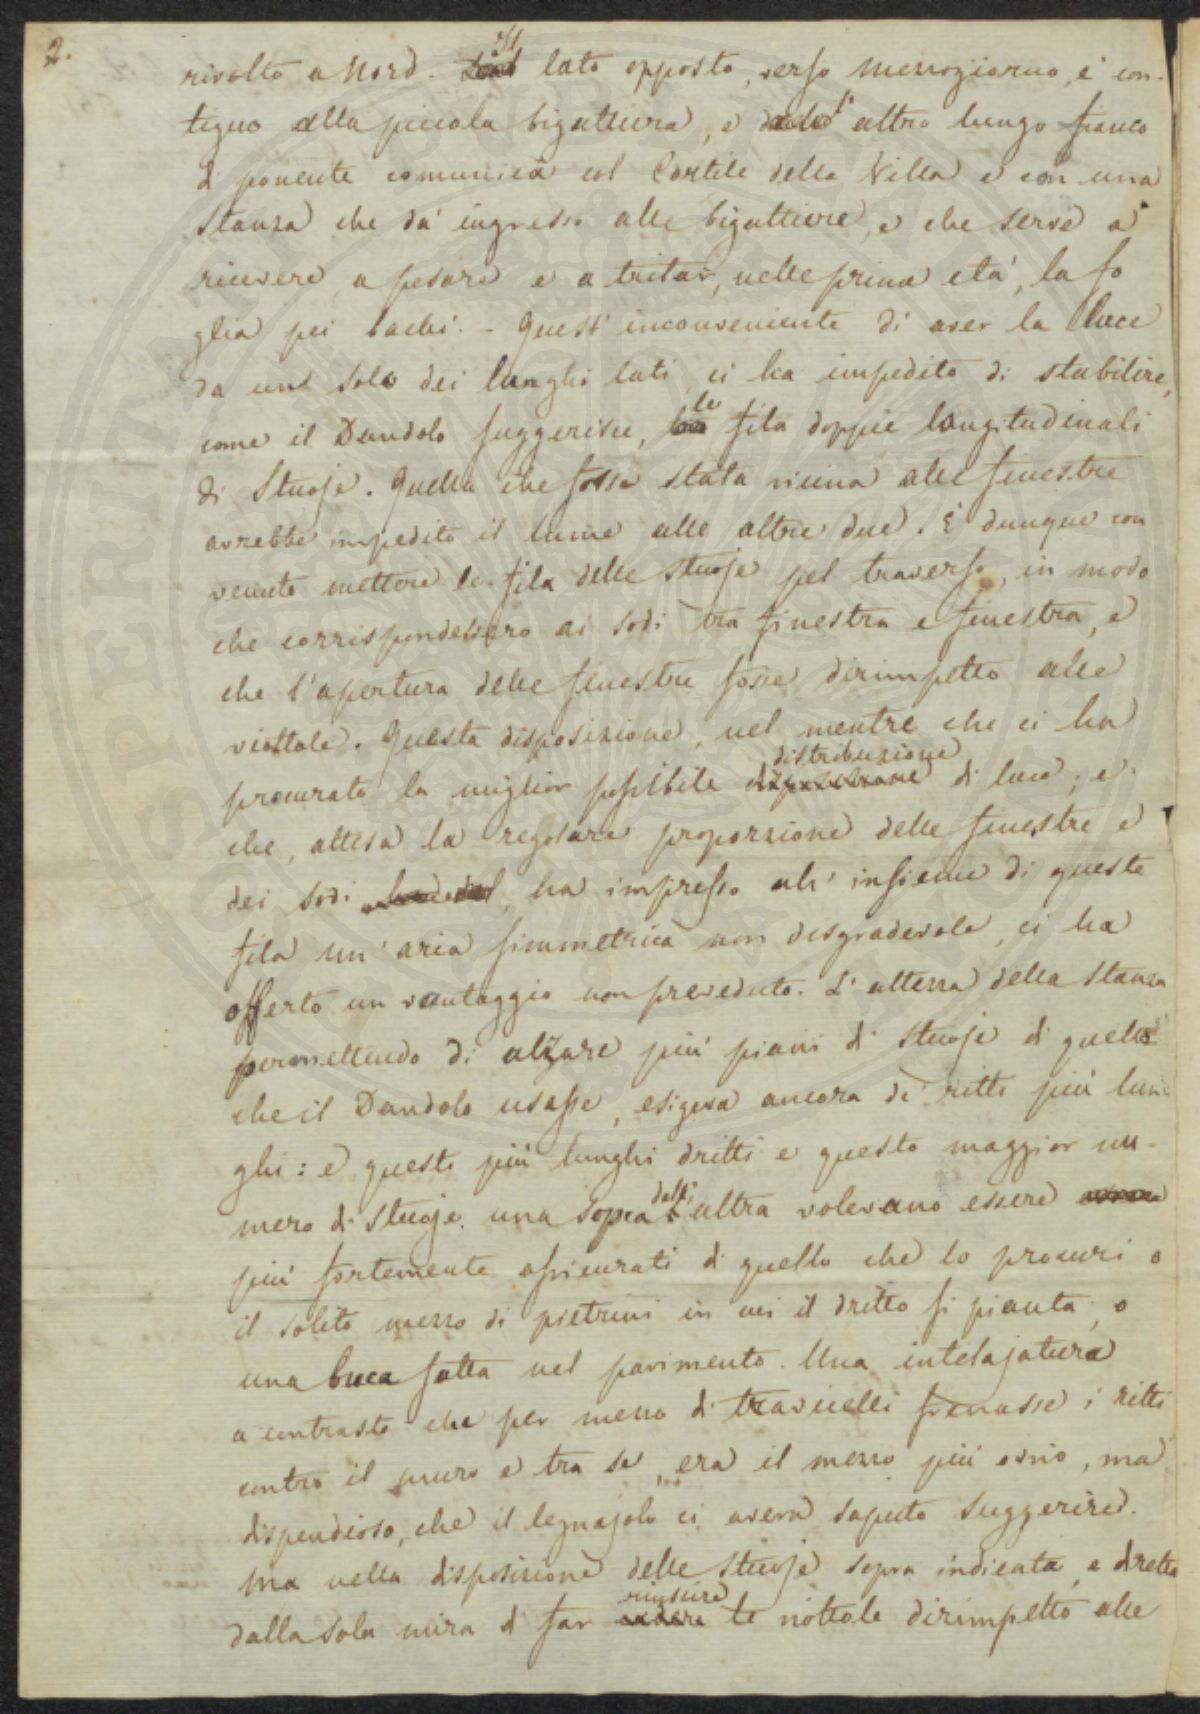 2.
rivolto a Nord. Il lato opposto, verso Mezzogiorno, è con-
tiguo alla piccola bigattiera, e dall' altro lungo fianco
di ponente comunica col Cortile della Villa e con una
stanza che dà ingresso alle bigattiere, e che serve a
ricevere, a pesare e a tritar, nelle prime età, la fo
glia pei bachi. - Quest' inconveniente di aver la luce
da un solo dei lunghi lati ci ha impedito di stabilire,
come il Dandolo suggerisce, le fila doppie longitudinali
di Stuoje. Quella che fosse stata vicina alle finestre
avrebbe impedito il lume alle altre due. È dunque con
venuto mettere le fila delle stuoje pel traverso, in modo
che corrispondessero ai sodi tra finestra e finestra, e
che l'apertura delle finestre fosse dirimpetto alle
viottole. Questa disposizione, nel mentre che ci ha
procurato la miglior possibile distribuzione di luce, e
che, attesa la regolare proporzione delle finestre e
dei sodi, ha impresso all' insieme di queste
fila un' aria simmetrica non disgradevole, ci ha
offerto un vantaggio non preveduto. L' altezza della stanza
permettendo di alzare più piani di stuoje di quello
che il Dandolo usasse, esigeva ancora de' ritti più lun
ghi: e questi più lunghi dritti e questo maggior nu-
mero di stuoje una sopra dall' altra volevano essere
più fortemente assicurati di quello che lo procuri o
il solito mezzo di pietrini in cui il dritto si pianta, o
una buca fatta nel pavimento. Una intelajatura
a contrasto che per mezzo di travicelli frenasse i ritti
contro il muro e tra se, era il mezzo più ovvio, ma
dispendioso, che il legnajolo ci aveva saputo suggerire.
Ma nella disposizione delle stuoje sopra indicata, e diretta
dalla sola mira di far riuscire le viottole dirimpetto alle